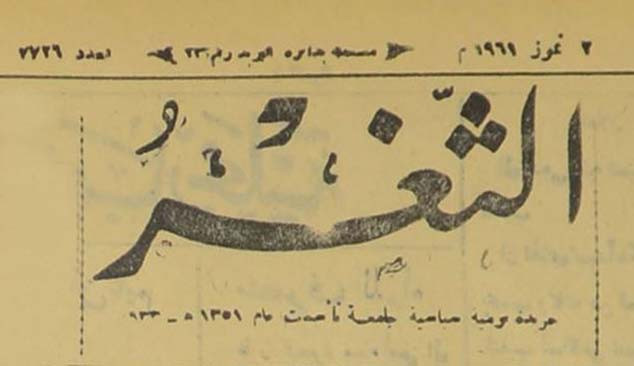 ٢ تموز ١٩٦١ م مسجلة بدائرة البريد رقم ٢٣ العدد ٧٧٢٦
الثَّغْرُ
جريدة يومية سياسية جامعة تأسست عام ١٣٥١ هـ - ١٩٣٣